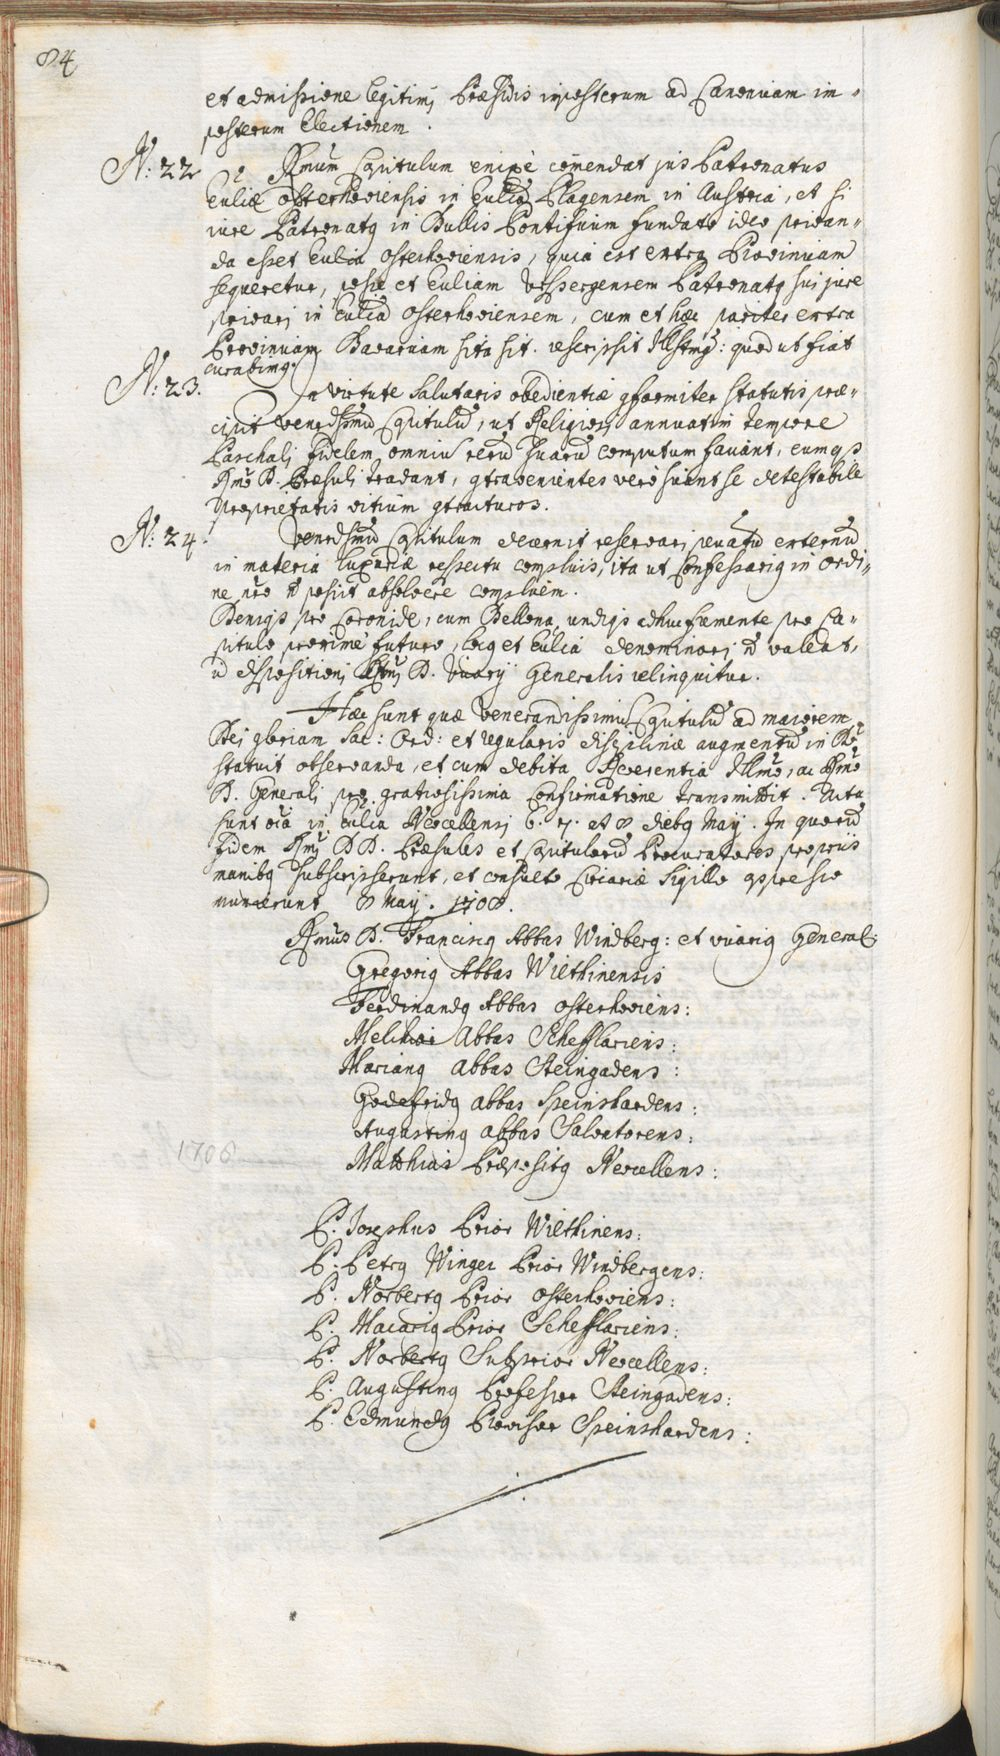 84
et admissione legitimj Præsidis imposterum ad Canonicam im-
posterum Electionem.
N: 22 Rmum Capitulum enixè comendat jus Patronatus
Eccliæ Osterhoviensis in Eccliã Plagensem in Austria, et si
iure Patronatq in Bullis Pontificum fundato ideo privan-
da esset Ecclia Osterhoviensis, quia est extra Provinciam
sequeretur, posse et Eccliam Ursbergensem Patronatq sui jure
privarj in Eccliã Osterhoviensem, cum et hæc pariter extra
Provinciam Bavaricam sita sit. rescripsit Illstmq: quod ut fiat
curabimq.
N: 23. In virtute salutaris obedientiæ gformiter statutis præ-
cipit venerdssmũ Capitulũ, ut Religiosj annuatim tempore
Paschalj fidelem omniũ rerũ suarũ computum faciant, eumqз
Rmo D. Præsulj tradant, gtravenientes verò sciant se detestabile
proprietatis vitium gtracturos.
N: 24. Venerdssmũ Capitulum decernit reservarj peccatũ externũ
in materia luxuriæ respectu complicis, ita ut Confessariq in Ordi-
ne nro ñ possit absolvere complicem.
Deniqз pro Coronide, cum Bellona undiqз adhuc fremente pro Ca-
pitulo proximè futuro, locq et Ecclia denominarj ñ valeat,
id dispositionj Rmj D. Vicarij Generalis relinquitur.
Hæc sunt quæ Venerandissimũ Capitulũ ad maiorem
Dej gloriam Sac: Ord: et regularis disziplinæ augmentũ in Dño
statuit observanda, et cum debita Reverentia Illmo, ac Rmo
D. Generalj pro gratiosissima Confirmatione transmittit. Acta
sunt oia in Ecclia Neocellensj 6. 7. et 8 diebq Maij. In quorũ
fidem Rmj DD. Præsules et Capitulorũ Procuratores propriis
manibq subscripserunt, et consueto Circariæ Sigillo appresso
munierunt 8 Maij. 1708.
Rmus D. Franciscq Abbas Windberg: et vicariq General:
Gregoriq Abbas Wilthinensis
Ferdinandq Abbas Osterhoviens:
Melchior Abbas Schefflariens:
Marianq Abbas Steingadens:
Godefridq abbas Speinshardens:
Augustinq abbas Salvatorens:
1708
Matthias Præpositq Neocellens:
P. Josephus Prior Wilthinens:
P. Petrq Winger Prior Windbergens:
P. Norbertq Prior Osterhoviens:
P. Macariq Prior Schefflariens:
P. Norbertq Subprior Neocellens:
P. Augustinq Professor Steingadens:
P. Edmundq Provisor Speinshardens: